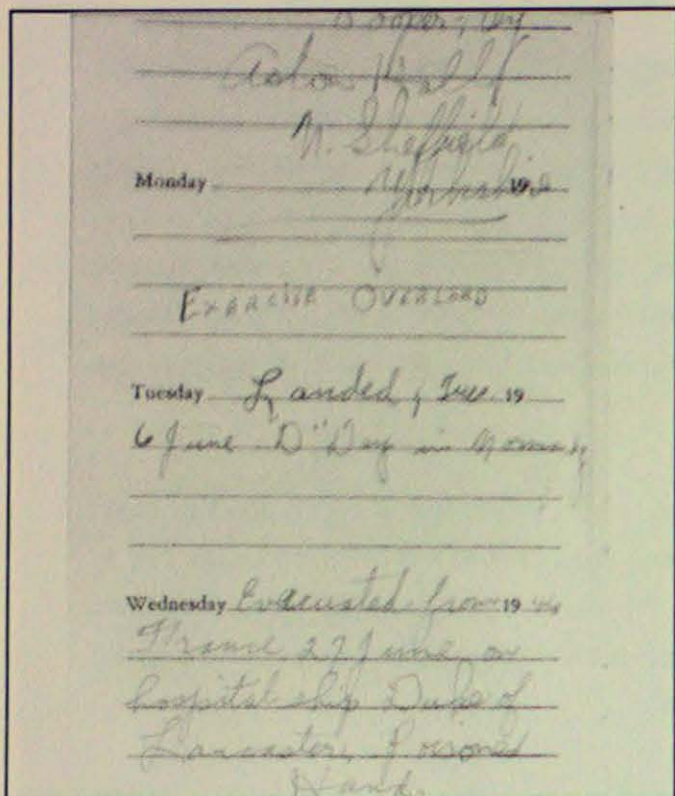 N. Sheffield
Monday Yorkshire 19
EXERCISE OVERLORD
Tuesday Landed, Tues. 19
6 June "D" Day in Normandy
Wednesday Evacuated from 19 44
France 27 June, on
hospital ship Duke of
Lancaster, Poisoned
Hand.